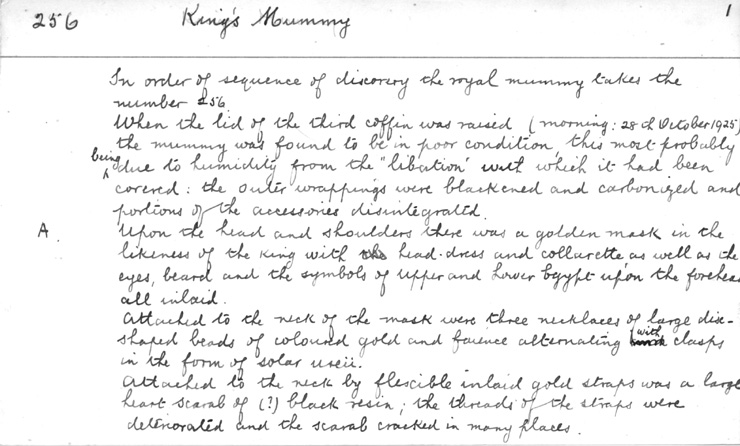 256 King's Mummy 1
In order of sequence of discovery the royal mummy takes the
number 256
When the lid of the third coffin was raised (morning: 28th October 1925)
the mummy was found to be in poor condition, this most probably
being due to humidity from the "libation" with which it had been
covered: the outer wrappings were blackened and carbonized and
portions of the accessories disintegrated.
A. Upon the head and shoulders there was a golden mask in the
likeness of the King with head-dress and collarette, as well as the
eyes, beard and the symbols of Upper and Lower Egypt upon the forehead
all inlaid.
Attached to the neck of the mask were three necklaces of large disc-
shaped beads of coloured gold and faience alternating with clasps
in the form of solar ureii.
Attached to the neck by flexible inlaid gold straps was a large
heart scarab of (?) black resin; the threads of the straps were
deteriorated and the scarab cracked in many places.